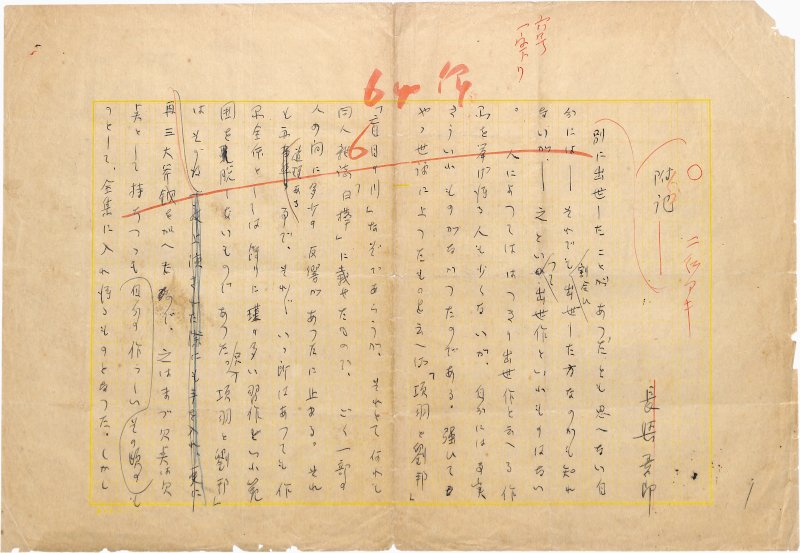 六号
一字下リ
64行
6
○ 二行アキ
附記
長與善郎
別に出世したことが あつたとも思へない自
分には― それでも割合ひ出世した方なのかも知れ
ないが、― 之といつて出世作といふものはない
。 人によつてははつきり出世作と云へる作
品を挙げ得る人も少くないが、自分には事実
さういふものがなかつたのである。強ひて
世評に上つたものと云へば「項羽と劉邦」
「盲目の川」なぞであらうが、それとて何れも
同人雑誌「白樺」に載せたもので、ごく一部の
人の間に多少の反響があつたに止まる。それ
も道理ある事で、それ〴〵いゝ所はあつても作
品全体としては餘りに瑾の多い習作といふ範
囲を脱しないものであつた。只「項羽と劉邦」
は 上演された際にも手を入れ、更に
再三大斧鉞を加へたので、之はまづ欠点は欠
点として持ちつつも自分の作
つとして、全集に入れ得るものとなつた。しかし